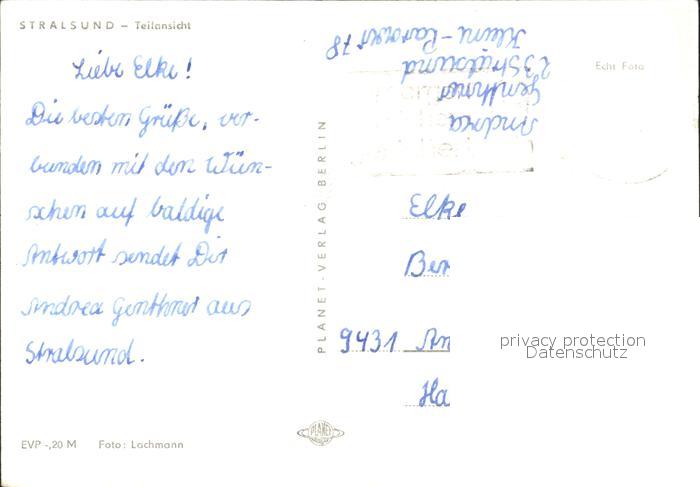 STRALSUND – Teilansicht
Liebe Elke!
Die besten Grüße, ver-
bunden mit den Wün-
schen auf baldige
Antwort sendet Dir
Andrea Genthner aus
Stralsund.
EVP -,20 M Foto: Lachmann
PLANET-VERLAG BERLIN
PLANET
Andrea
Genthner
23 Stralsund
78
Echt Foto
Elke
Ber
9431 An
Ha
privacy protection
Datenschutz